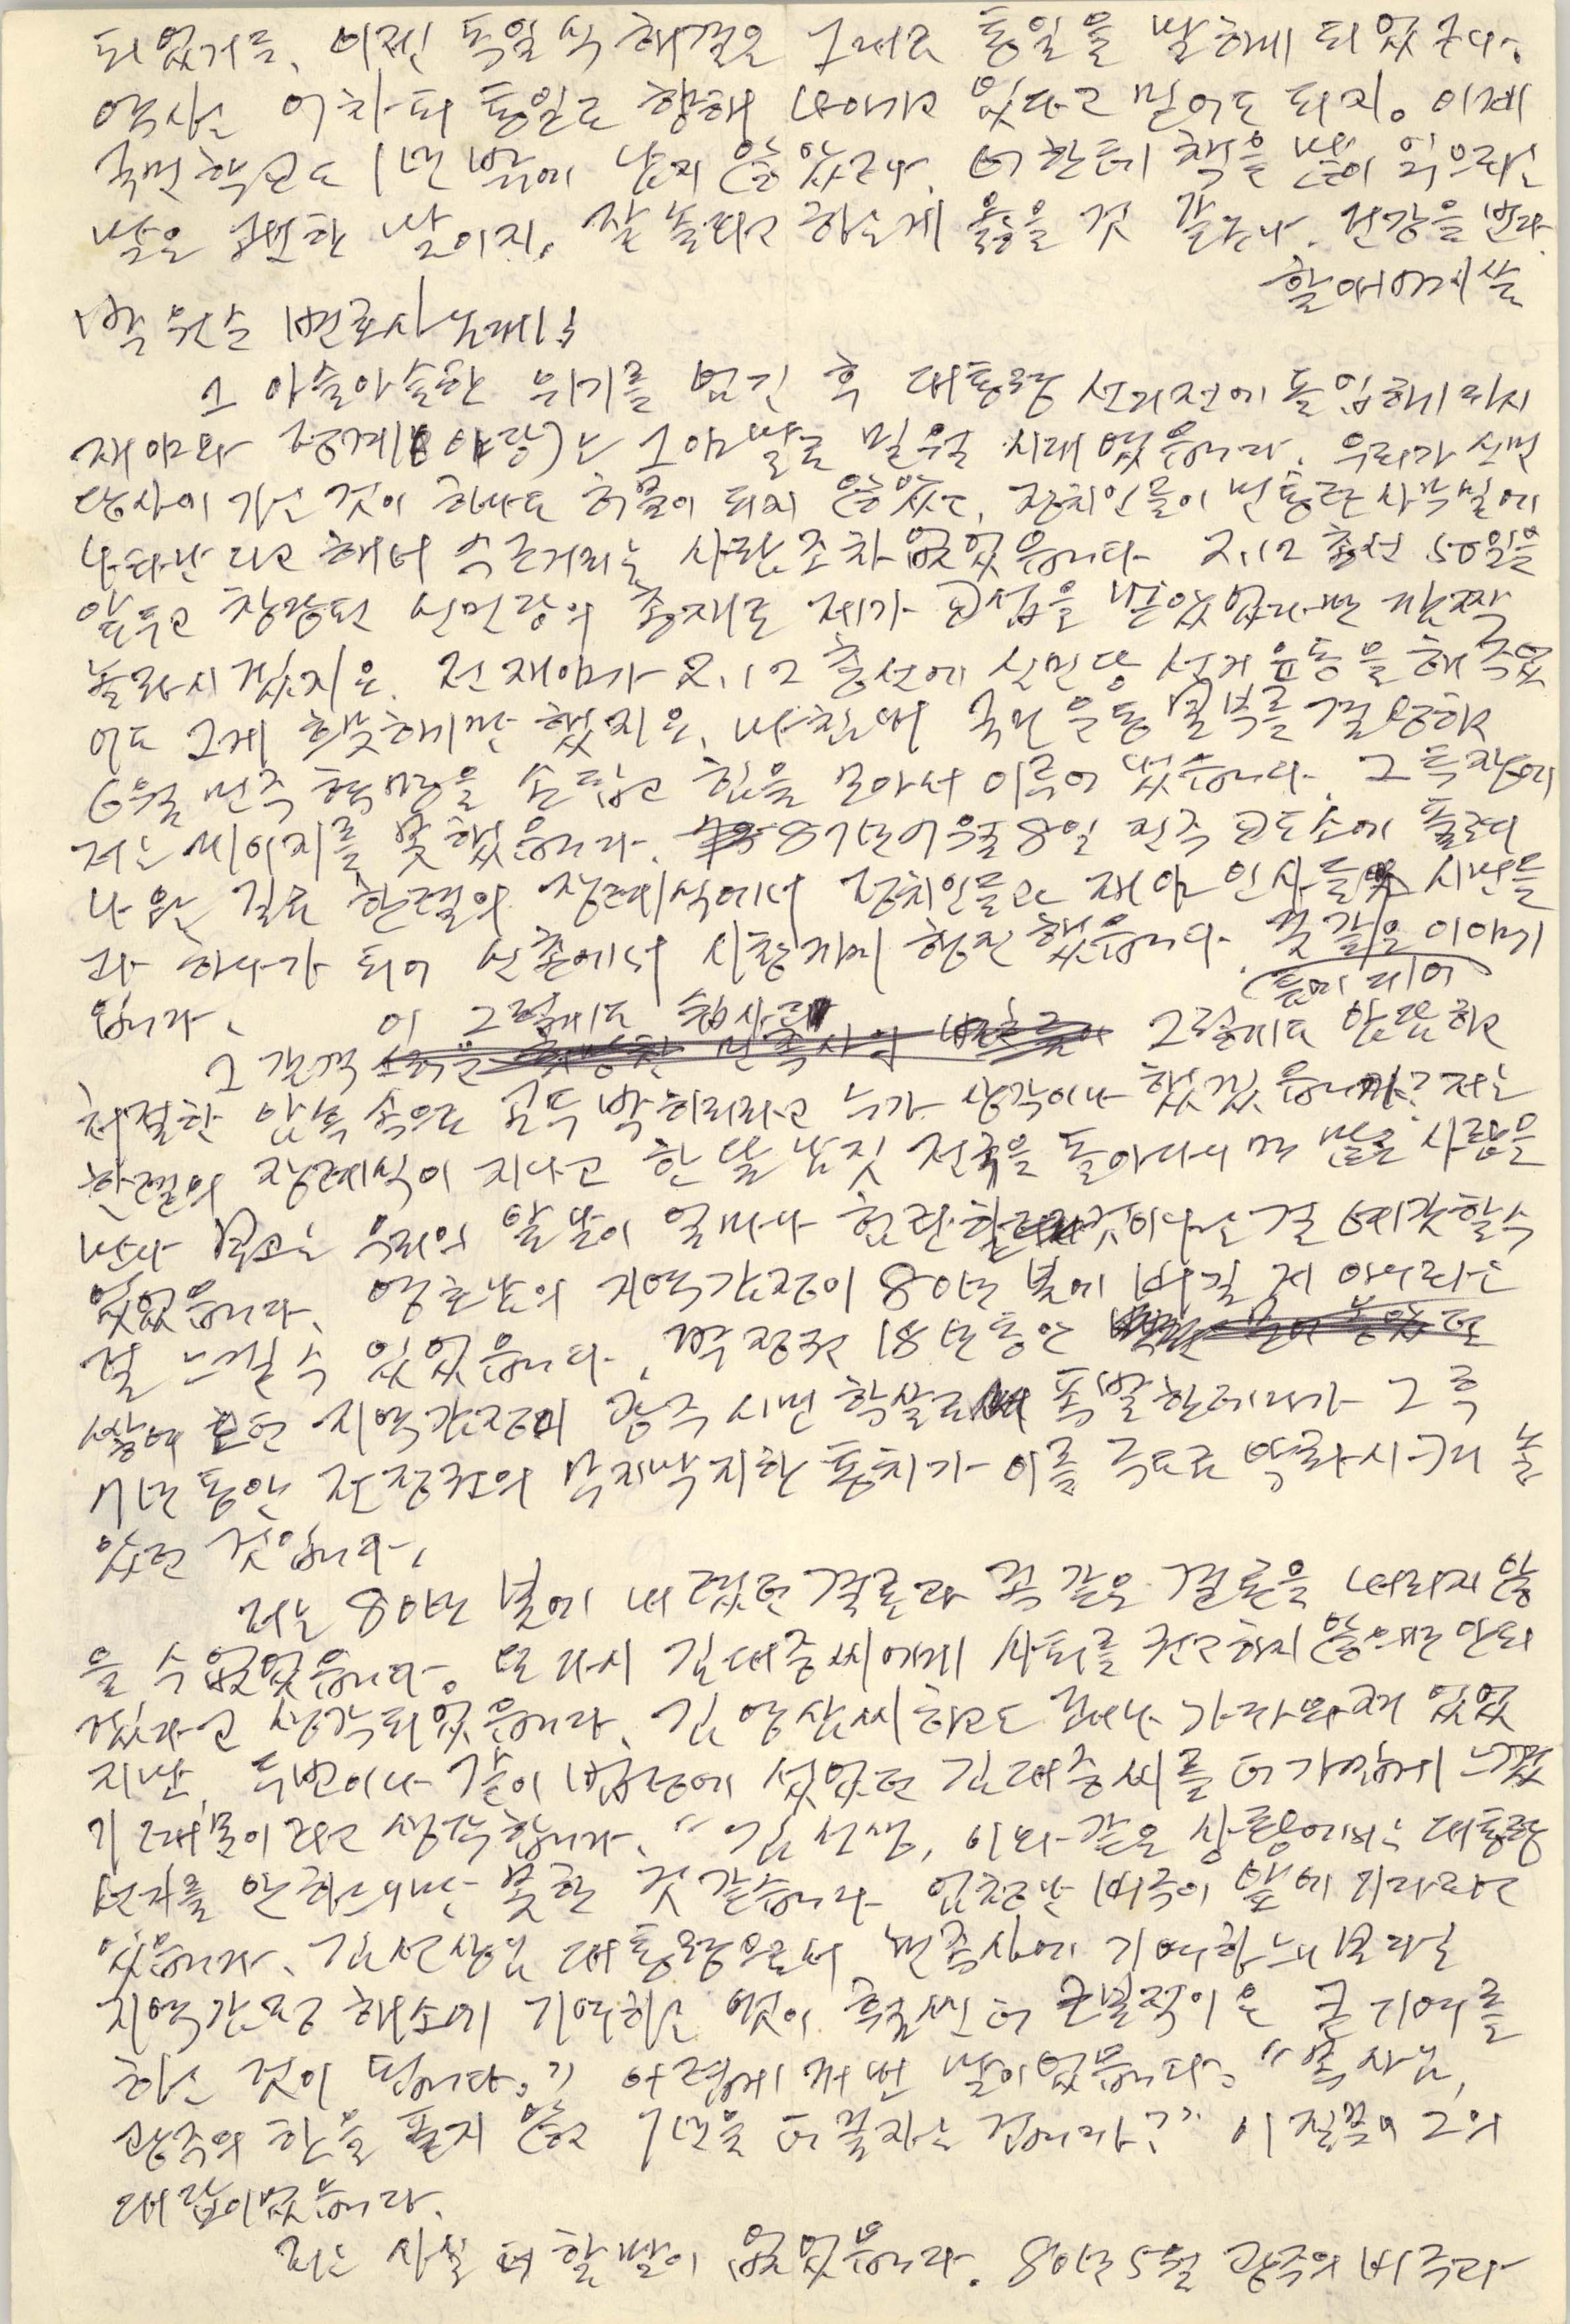 되었거든. 이젠 독일식 해결은 그대로 통일을 말하게 되었구나.
역사는 어차피 통일로 향해 나아가고 있다고 믿어도 되지. 이제
국민학교도 1년 밖에 남지 않았구나. 너한테 책을 많이 읽으라는
말은 뻔한 말이지. 잘 놀라고 하는게 옳을 것 같구나. 건강을 빈다.
할아버지가
박원순 변호사님께!
그 아슬아슬한 위기를 넘긴 후 대통령 선거전에 돌입하게 되자
재야와 정계(야당)는 그야말로 밀월 시대였습니다. 우리가 신민
당사에 가는 것이 하나도 허물이 되지 않았고, 정치인들이 민통련 사무실에
나타난다고 해서 수군거리는 사람조차 없었습니다. 2.12 총선 50일을
앞두고 창당된 신민당의 총재로 제가 교섭을 받았었다면 깜짝
놀라시겠지요. 전 재야가 2.12 총선에 신민당 선거운동을 해 주었
어도 그게 흐뭇하기만 했지요. 마침내 국민운동본부를 결성하고
6월 민주 혁명을 손잡고 힘을 모아서 이루어 냈습니다. 그 득표에
저는 끼이지를 못했습니다. 87년 7월 8일 진주 교도소에서 풀려
나온 길로 한열의 장례식에서 정치인들과 재야 인사들 시민들
과 하나가 되어 신촌에서 시청까지 행진했습니다. 꿈같은 이야기
입니다.
그 감격이 그렇게도 쉽사리 그렇게도 암담하고
처절한 암흑 속으로 곤두박히리라고 누가 생각이나 했겠습니까? 저는
한열의 장례식이 지나고 한 달 남짓 전국을 돌아다니며 많은 사람을
만나 보고는 우리의 앞날이 얼마나 험난할 것이라는 걸 예감할 수
있었습니다. 영호남의 지역감정이 80년 봄에 비길 게 아니라는
걸 느낄 수 있었습니다. 박정권 18년 동안
쌓여 온 지역감정이 광주 시민 학살로 폭발한데다가 그 후
7년 동안 전정권의 무지막지한 통치가 이를 극도로 악화시켜 놓
았던 것입니다.
저는 80년 봄에 내렸던 결론과 꼭 같은 결론을 내리지 않
을 수 없었습니다. 또다시 김대중씨에게 사퇴를 권고하지 않으면 안되
겠다고 생각되었습니다. 김영삼씨하고도 꽤나 가까와져 있었
지만, 두 번이나 같이 법정에 섰었던 김대중씨를 더 가깝게 느꼈
기 때문이라고 생각합니다. "김선생, 이와 같은 상황에서는 대통령
선거를 안 하느니만 못한 것 같습니다. 엄청난 비극이 앞에 기다리고
있습니다. 김선생님 대통령으로서 민족사에 기여하느니보다는
지역감정 해소에 기여하는 것이 훨씬 더 근본적이요 큰 기여를
하는 것이 됩니다." 어렵게 꺼낸 말이었습니다. "목사님,
광주의 한을 풀지 않고 7년을 더 끌자는 겁니까?" 이 질문이 그의
대답이었습니다.
저는 사실 더 할 말이 없었습니다. 80년 5월 광주의 비극과